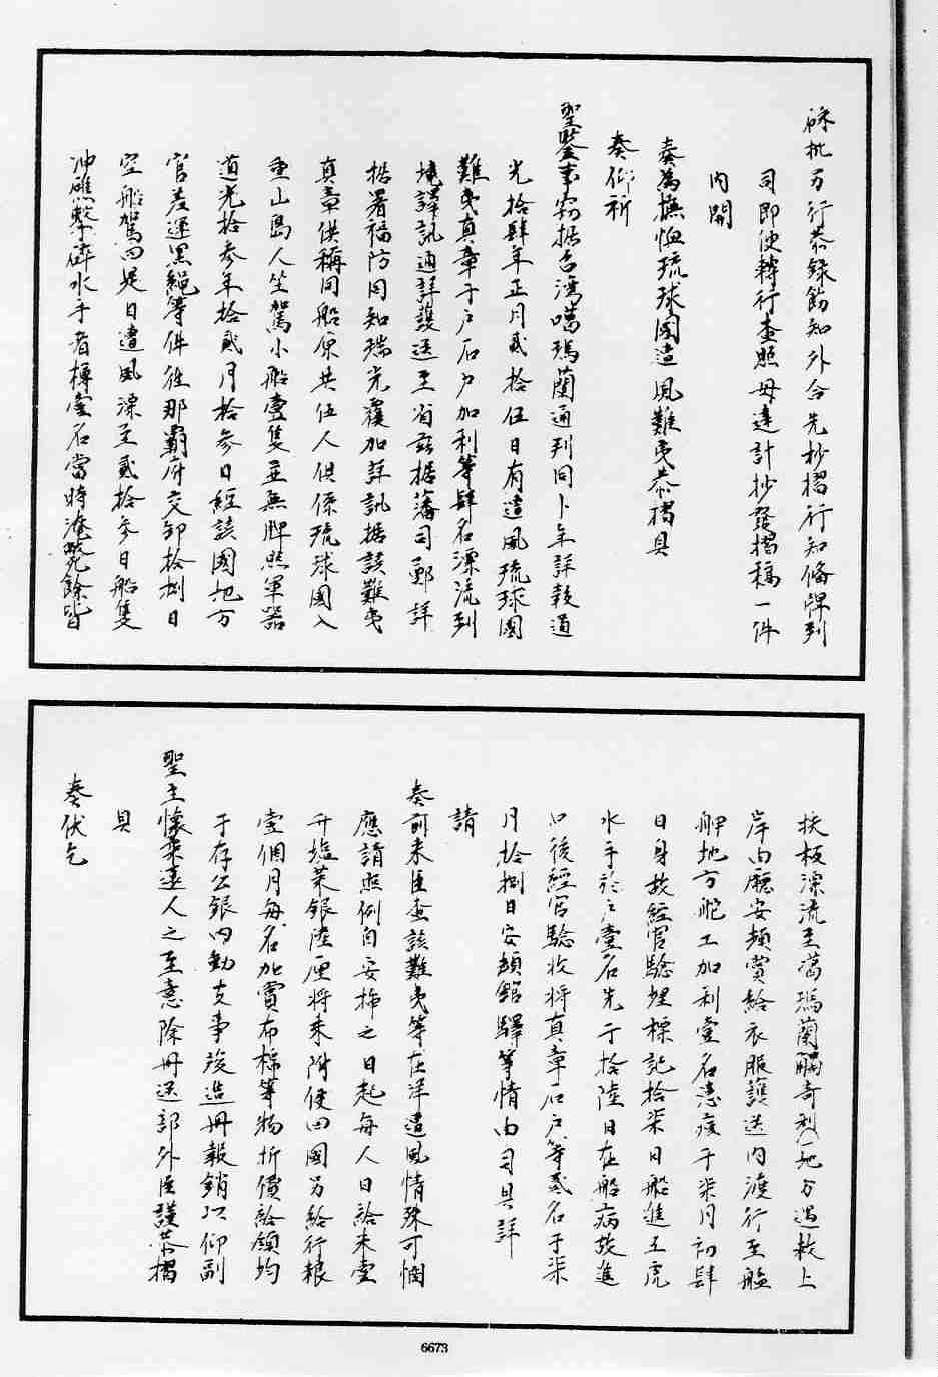 硃批另行恭錄飭知外合先抄摺行知俻牌到
司即便轉行查照毋違計抄發摺稿一件
內開
奏為撫恤琉球國遭風難夷恭摺具
奏仰祈
聖鑒事窃据台灣噶瑪蘭通判同卜年詳報道
光拾肆年正月貳拾伍日有遭風琉球國
難夷真章于戶石戶加利等肆名漂流到
境譯訊通詳護送至省兹据藩司鄭詳
据署福防同知瑞光覆加詳訊据該難夷
真章供稱同船原共伍人俱係琉球國入
重山島人坐駕小船壹隻並無牌照軍器
道光拾参年拾貳月拾参日經該國地方
官差運黑繩等件徃那霸府交卸拾捌日
空船駕回是日遭風漂至貳拾参日船隻
冲礁擊碎水手者樽壹名當時淹斃餘皆
扶板漂流至葛瑪蘭觸奇利地方遇救上
岸內廳安頓賞給衣服護送內渡行至艋
舺地方舵工加利壹名患疫于柒月初肆
日身故經官驗埋標記拾柒日船進五虎
水手於戶壹名先于拾陸日在船病故進
口後經官驗收將真章石戶等貳名于柒
月拾捌日安頓舘驛等情由司具詳
請
奏前来臣查該難夷等在洋遭風情殊可憫
應請照例自安揷之日起每人日給米壹
升塩菜銀陸厘將来附便回國另給行粮
壹個月每名加賞布棉等物折價給領均
于存公銀內動支事竣造冊報銷以仰副
聖主懷柔遠人之至意除冊送部外臣謹恭摺
具
奏伏乞
6673